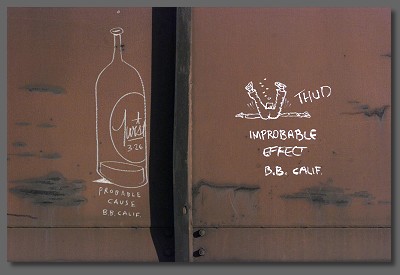 3 26
PROBABLE
CAUSE
B.B. CALIF.
THUD
IMPROBABLE
EFFECT
B.B. CALIF.